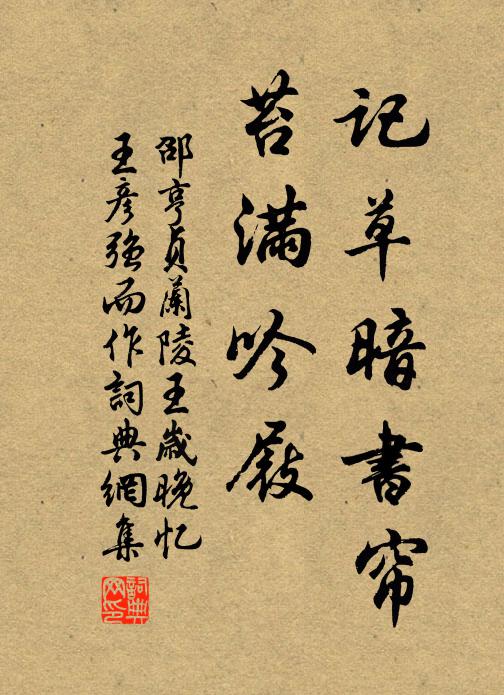 记草暗書帘
苔滿吟屐
邵亨貞蘭陵王歲晚忆
王彥強而作詞典網集
詞典网印